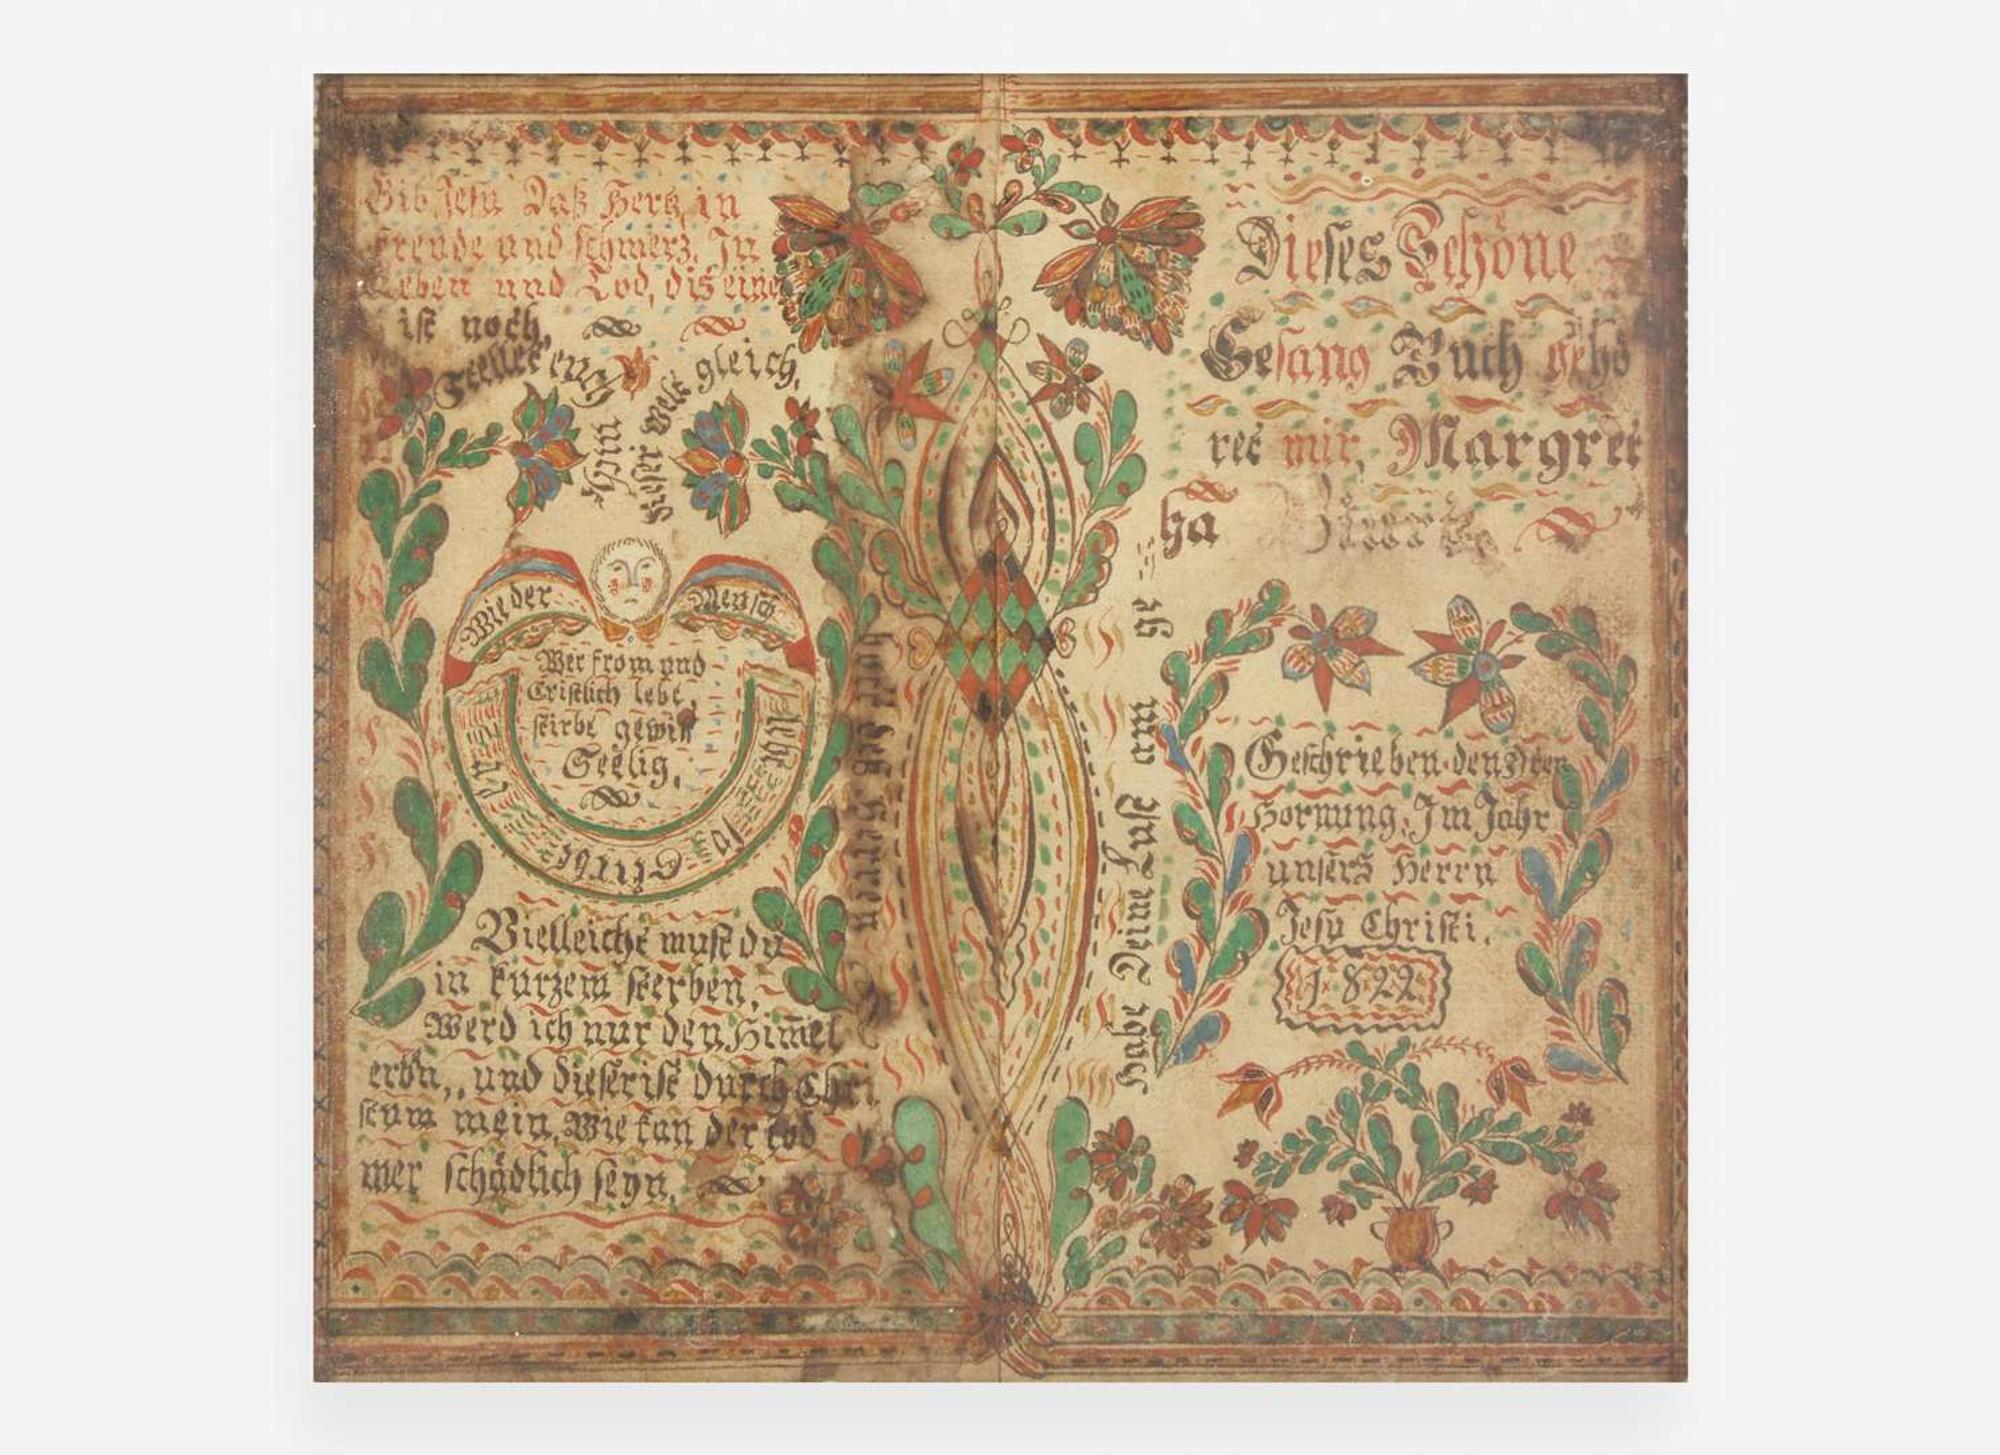 Gib Jesu Daß Hertz, in
freude und schmerz. In
Leben und Tod, dis eine
ist noth,
Stellet euch
nicht
dieser Welt gleich,
Wie der Mensch
lebt
so Stirbt
Wer from und
Cristlich lebt,
stirbt gewiß
Seelig.
Vielleicht must du
in kurzem sterben,
Werd ich nur den Him̄el
erbn, und dieser ist durch Chri
stum mein, Wie kan der tod
mer schädlich seyn.
Habe Deine Lust am
des Herren
Dieses Schöne
Gesang Buch gehö
ret mir, Margret
ha
Geschrieben den
Hornung, Im Jahr
unsers Herrn
Jesu Christi.
1822